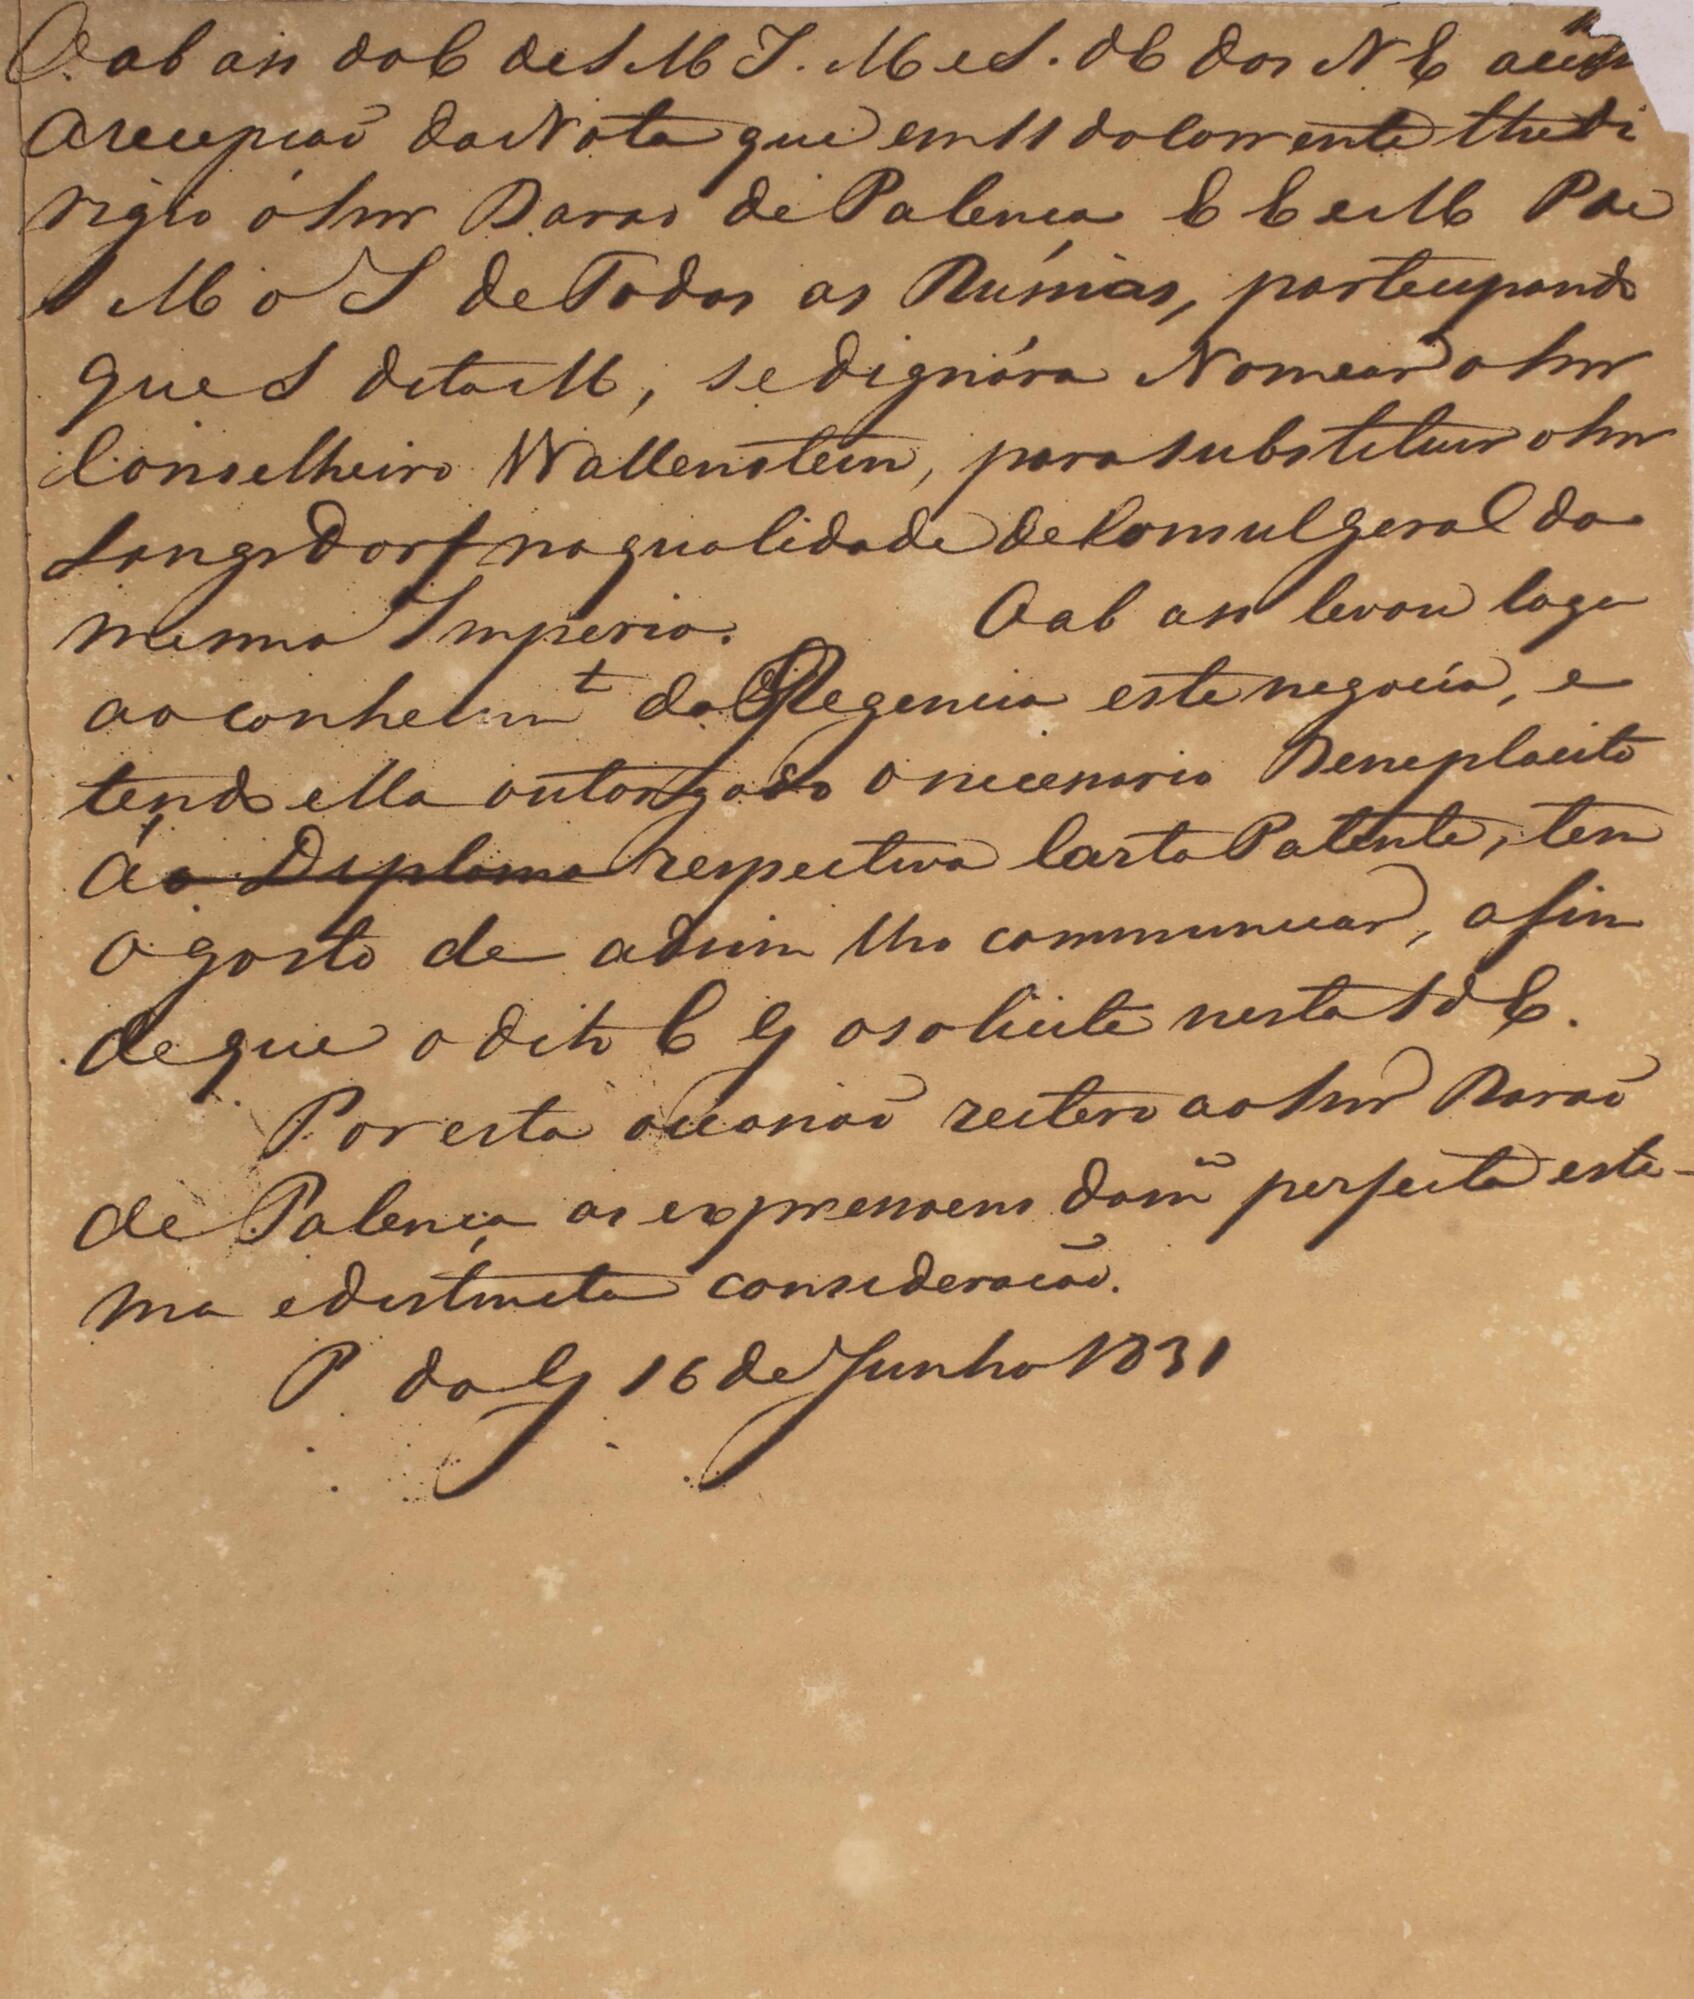 O ab ass do C de S M I. M e S. d E dos N E accusa
a recepção da Nota que em 11 do corrente lhe di
rigio ó Snr Barão de Palença E E e M P de
S M o I de Todas as Rússias, participando
que S dita M, se dignára Nomear o Snr
Conselheiro Wallenstein, para substituir o Snr
Langsdorf na qualidade de Consul geral do
mesmo Imperio. O ab ass levou logo
ao conhecimt da Regencia este negocio, e
tendo ella outorgado o necessario Beneplacito
Áo Diploma respectiva Carta Patente, tem
o gosto de assim lho communicar, afim
de que o dito C G o solicite nesta S d E.
Por esta occasião reitero ao Snr Barão
de Palença as expressoens da m perfeita esti-
ma e distincta consideração.
P. do G 16 de Junho 1831